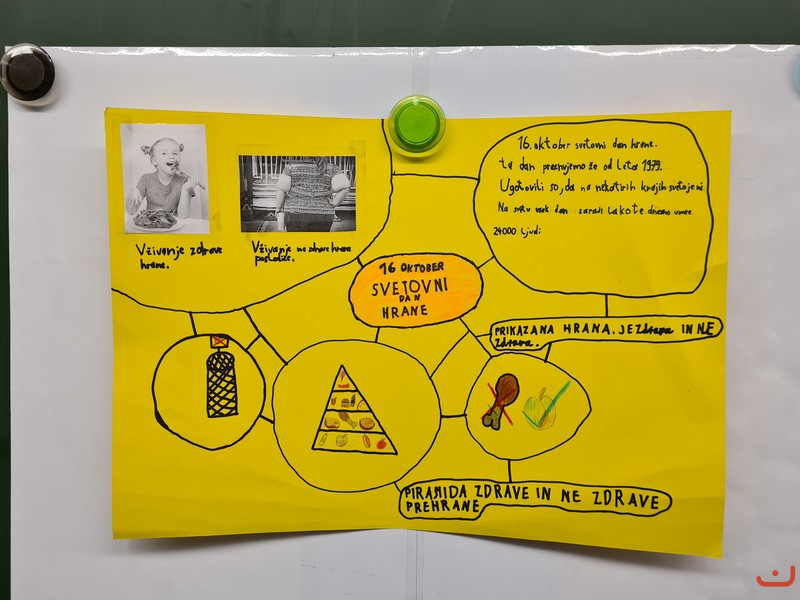 Vživanje zdrave
hrane.
Vživanje ne zdrave hrane
posledice.
16. oktober svetovni dan hrane.
ta dan praznujemo že od leta 1979.
Ugotovili so, da na nekaterih krajih sveta je ni
Na svetu vsak dan zaradi lakote dnevno umre
24000 ljudi
16 OKTOBER
SVETOVNI
DAN
HRANE
PRIKAZANA HRANA, JE zdrava IN NE
zdrava.
PIRAMIDA ZDRAVE IN NE ZDRAVE
PREHRANE